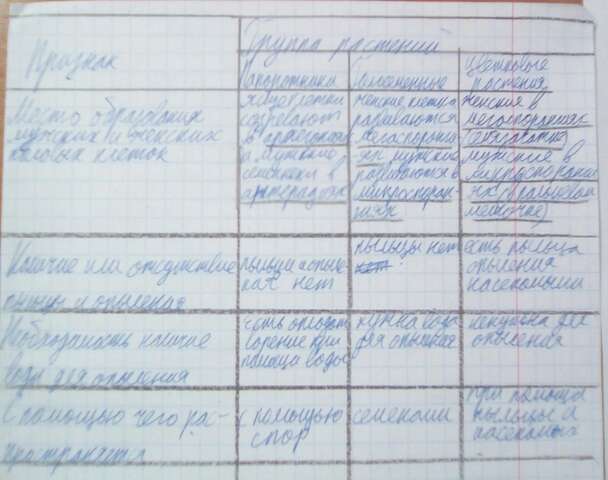 Признак
Группа растений
Папоротники
Голосеменные
Цветковые
растения
Место образования
мужских и женских
половых клеток
яйцеклетки
созревают
в архегониях
а мужские
в
антеридиях
женские клетки
развиваются
мегаспоранги-
ях, мужские
развиваются в
микроспоран-
гиях
женские в
мегаспорангиях
мужские в
микроспоранги
ях (пыльцевом
мешочке)
Наличие или отсутствие
пыльцы и опыления
пыльцы
нет
пыльцы нет
есть пыльца
опыления
насекомыми
Необходимость наличие
воды для опыления
есть оплодот
ворение при
помощи воды
нужна вода
для опыления
ненужна для
опыления
С помощью чего ра-
пространяется
с помощью
спор
семенами
при помощи
пыльцы и
насекомых